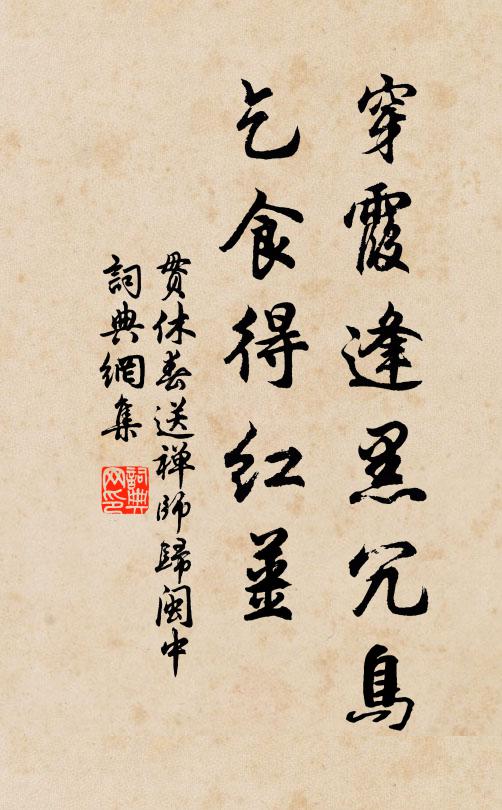 穿霞逢黑冗鳥
乞食得紅薑
貫休春送禅師歸閩中
詞典網集
詞典
网印